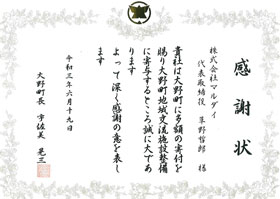 感謝状
株式会社マルダイ
代表取締役 草野哲郎 様
貴社は大野町に多額の寄付を
賜り大野町地域交流施設整備
に寄与するところ誠に大であ
ります
よって深く感謝の意を表し
ます
令和三年六月十九日
大野町長 宇佐美晃三